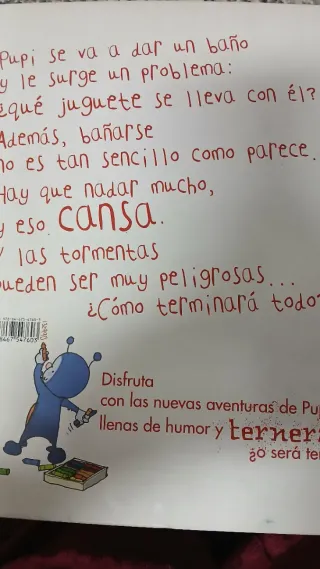 Pupi se va a dar un baño
y le surge un problema:
¿qué juguete se lleva con él?
Además, bañarse
no es tan sencillo como parece.
Hay que nadar mucho,
y eso cansa.
Y las tormentas
pueden ser muy peligrosas...
¿Cómo terminará todo?
Disfruta
con las nuevas aventuras de
llenas de humor y
¿o será